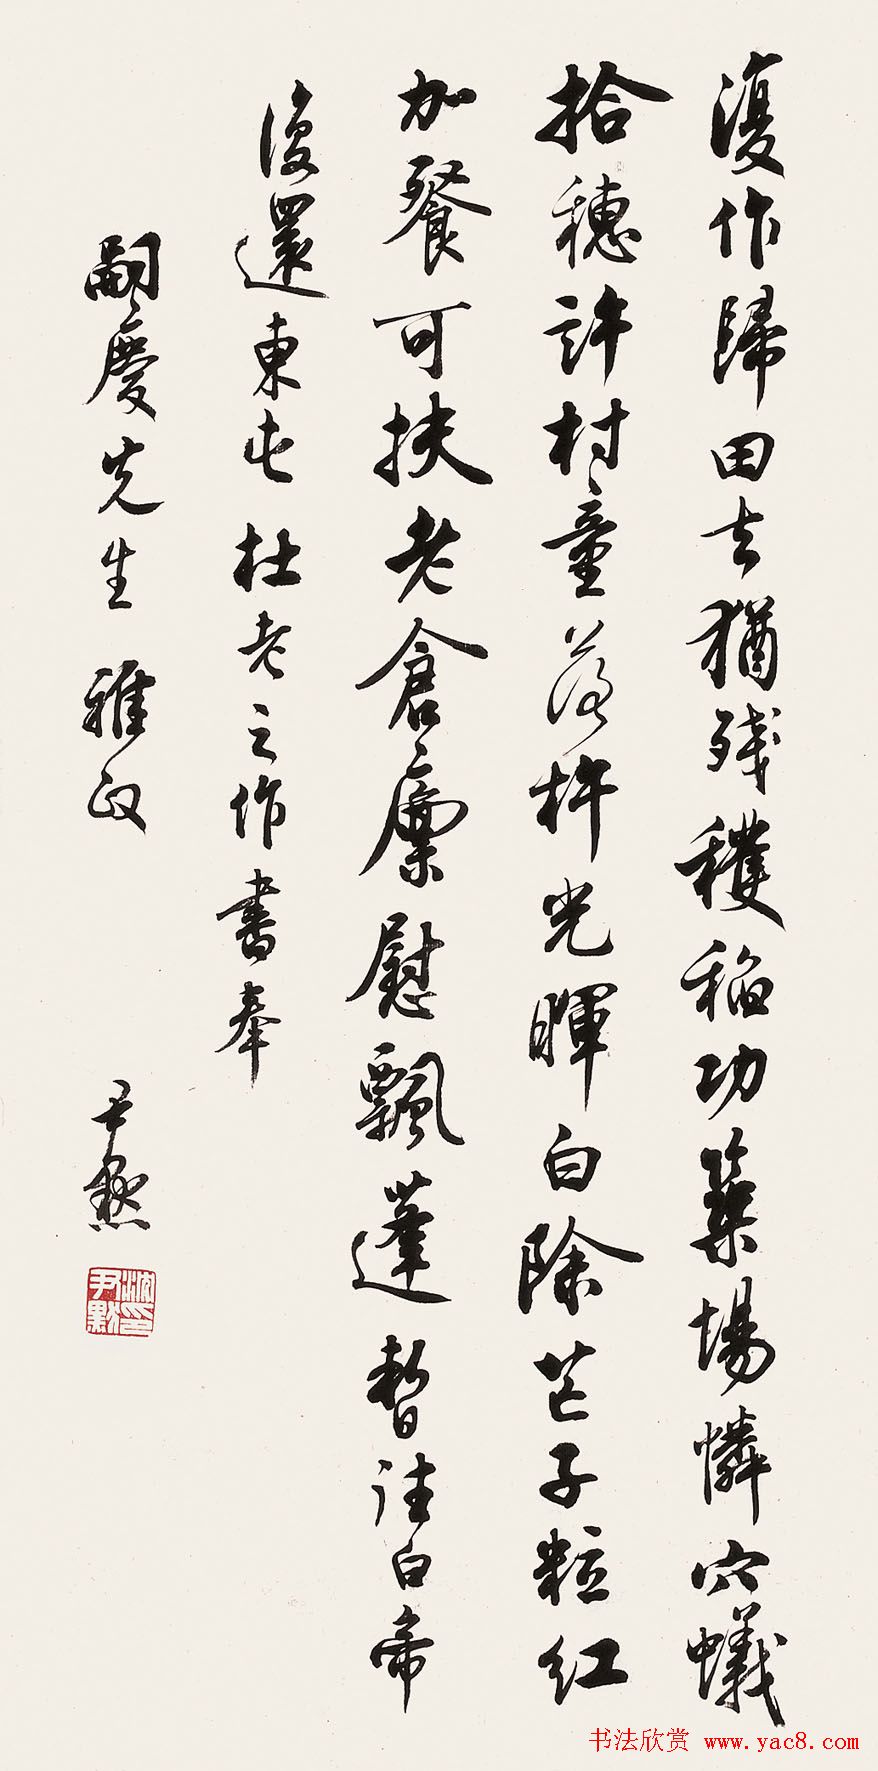 復作歸田去猶殘穫稻功築場憐穴蟻
拾穗許村童落杵光暉白除芒子粒紅
加餐可扶老倉廩慰飄蓬暫往白帝
復還東屯杜老之作書奉
嗣慶先生雅政 尹默
沈印尹默
书法欣赏 www.yac8.com